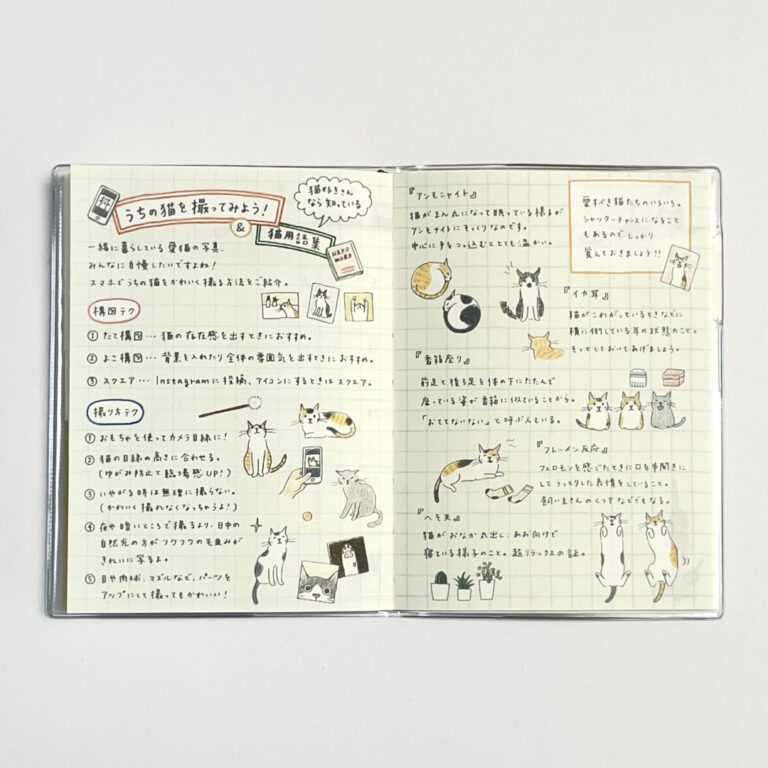 うちの猫を撮ってみよう!
&
猫用語集
猫好きさん
なら知っている
NEKO
WORD
一緒に暮らしている愛猫の写真、
みんなに自慢したいですよね!
スマホでうちの猫をかわいく撮る方法をご紹介。
構図テク
① たて構図… 猫の存在感を出すときにおすすめ。
② よこ構図… 背景を入れたり全体の雰囲気を出すときにおすすめ。
③ スクエア… Instagramに投稿、アイコンにするときはスクエア。
撮り方テク
① おもちゃを使ってカメラ目線に!
② 猫の目線の高さに合わせる。
(ゆがみ防止と臨場感UP!)
③ いやがる時は無理に撮らない。
(かわいく撮れなくなっちゃうよ!)
④ 夜や暗いところで撮るより、日中の
自然光の方がフワフワの毛並みが
きれいに写るよ。
⑤ 目や肉球、マズルなど、パーツを
アップにして撮ってもかわいい!
『アンモニャイト』
猫がまん丸になって眠っている様子が
アンモナイトにそっくりなのです。
中心に手をつっ込むととても温かい。
愛すべき猫たちのいろいろ。
シャッターチャンスになること
もあるのでしっかり
覚えておきましょう!!
『イカ耳』
猫がこわがっているときなどに
横に倒している耳の状態のこと。
そっとしておいてあげましょう。
『香箱座り』
前足と後ろ足を体の下にたたんで
座っている姿が香箱に似ていることから。
「おててないない」と呼ぶ人もいる。
『フレーメン反応』
フェロモンを感じたときに口を半開きに
してうっとりした表情をしていること。
飼い主さんのくつ下などでもなる。
『へそ天』
猫がおなか丸出し、あお向けで
寝ている様子のこと。超リラックスの証。